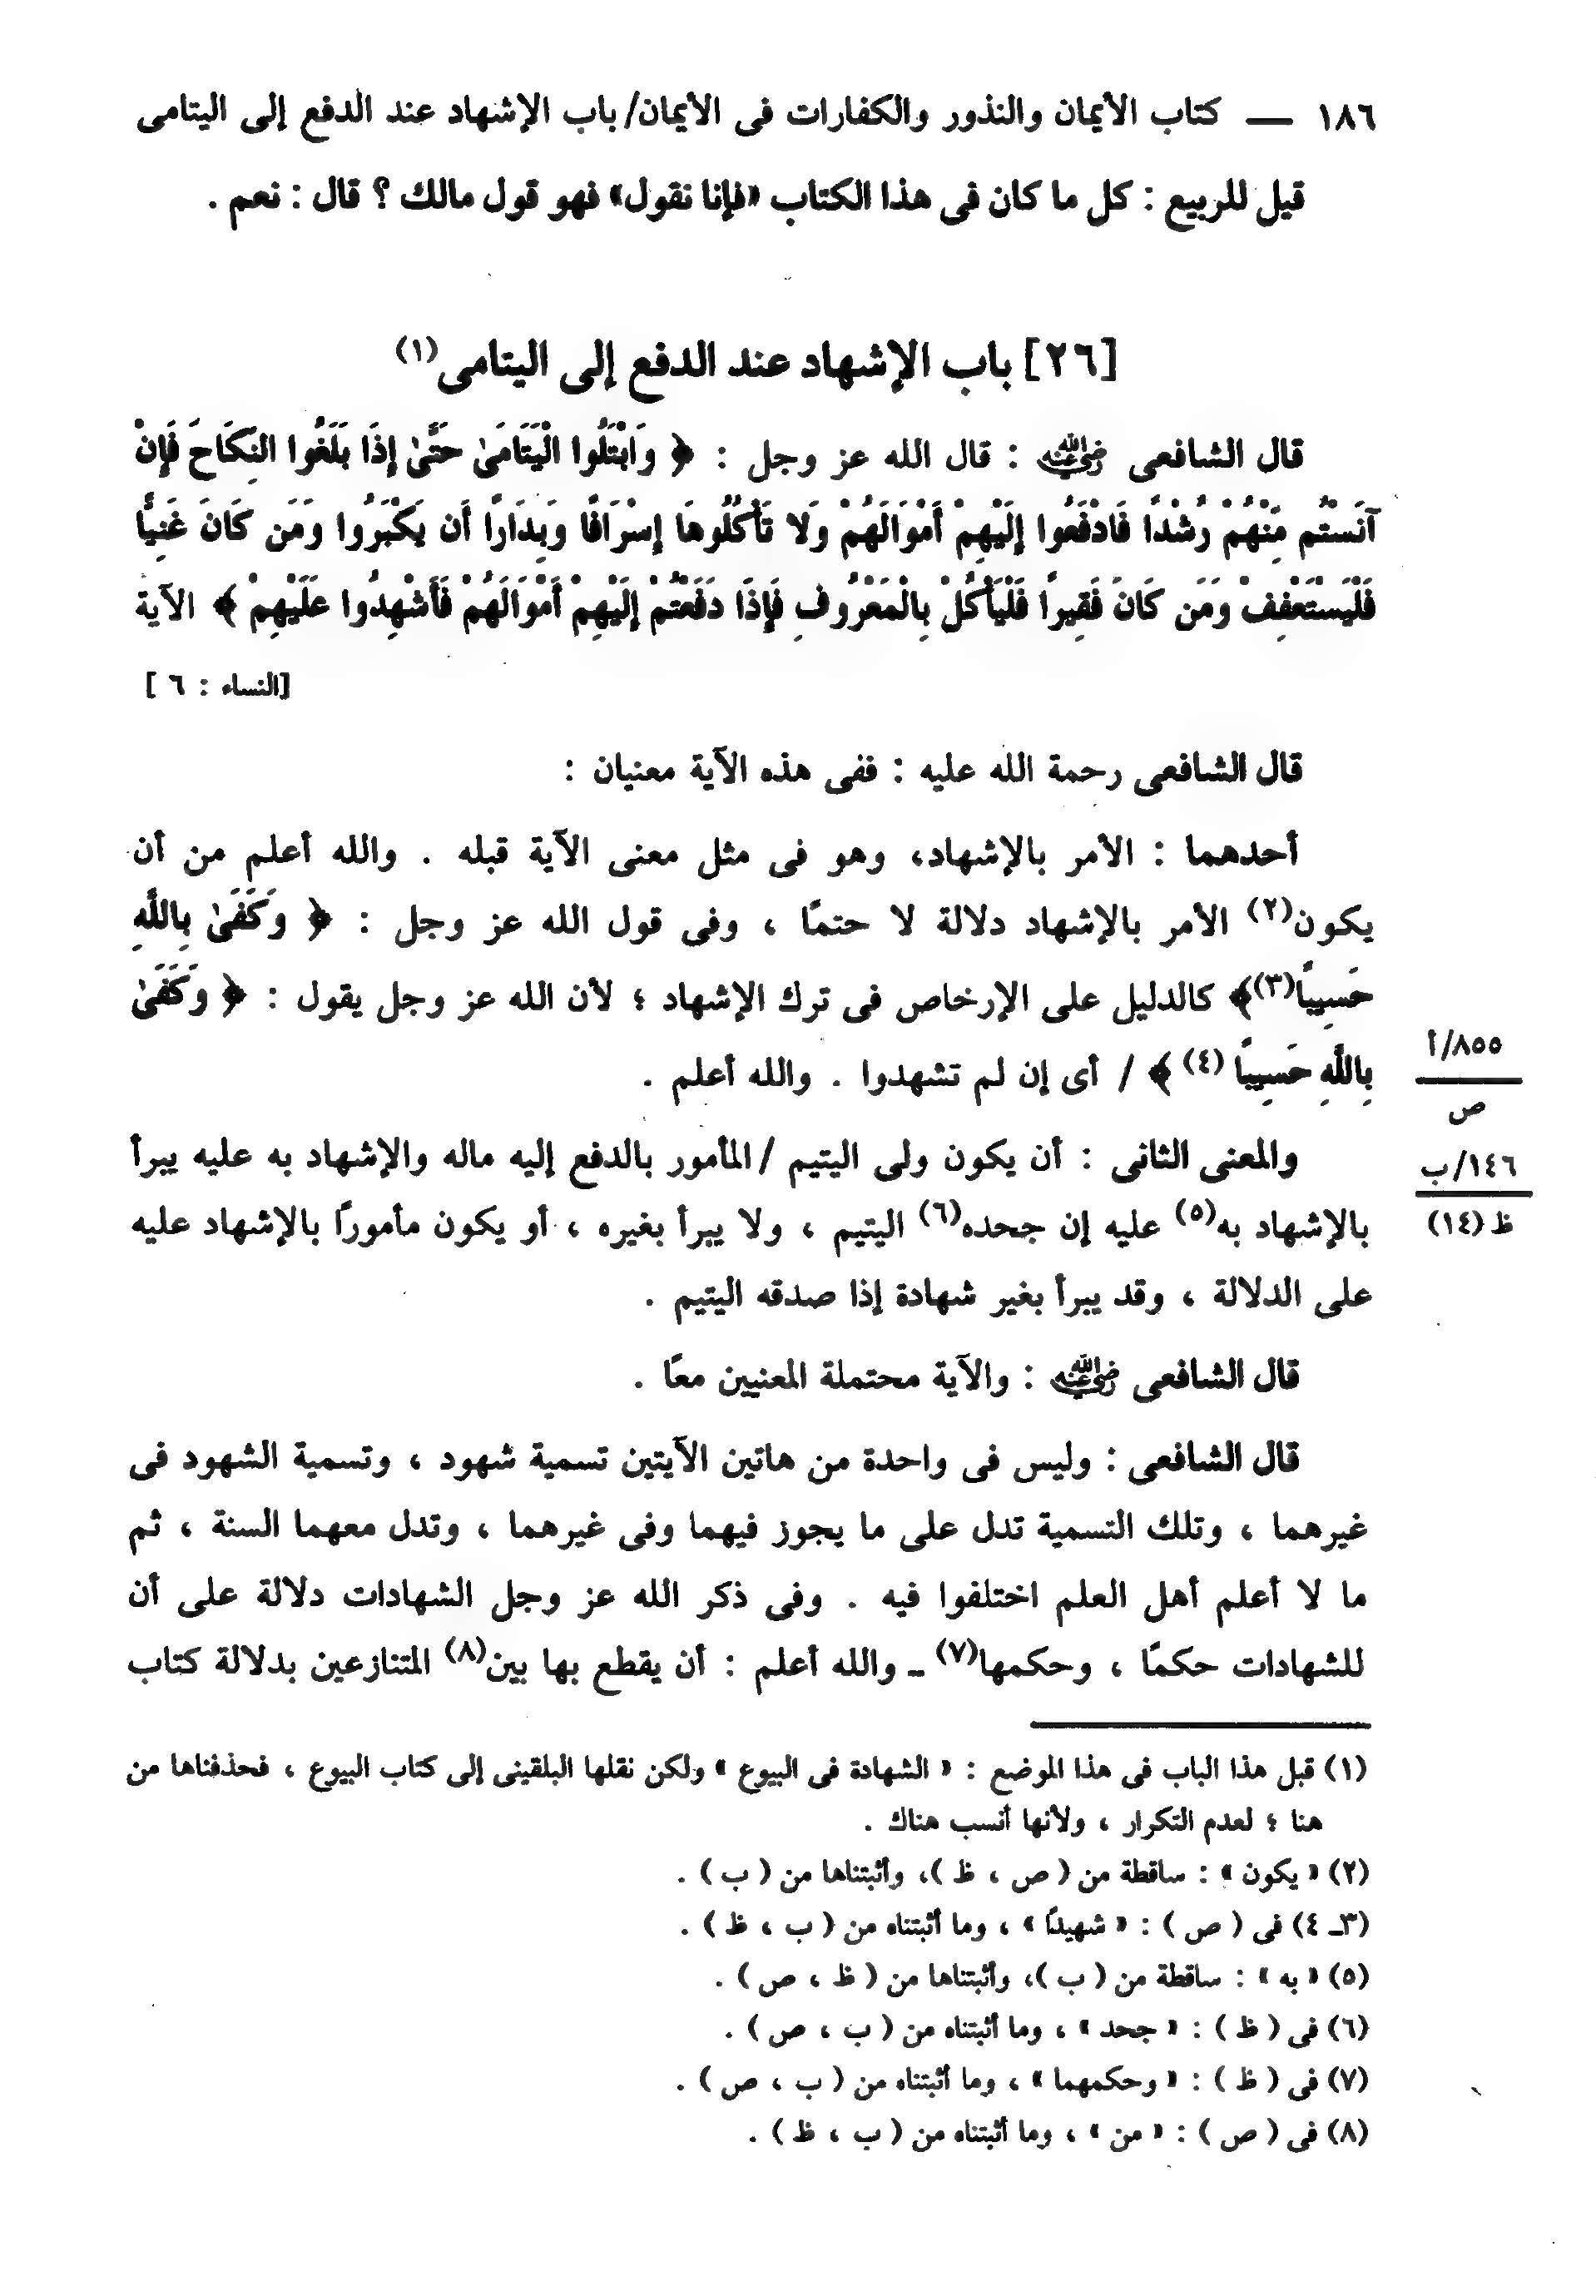 ١٨٦ — كتاب الأيمان والنذور والكفارات فى الأيمان/ باب الإشهاد عند الدفع إلى اليتامى
قيل للربيع : كل ما كان فى هذا الكتاب «فإنا نقول» فهو قول مالك ؟ قال : نعم .
[٢٦] باب الإشهاد عند الدفع إلى اليتامى(١)
قال الشافعى رضي الله عنه : قال الله عز وجل : ﴿ وَابْتَلُوا الْيَتَامَىٰ حَتَّىٰ إِذَا بَلَغُوا النِّكَاحَ فَإِنْ
آنَسْتُم مِّنْهُمْ رُشْدًا فَادْفَعُوا إِلَيْهِمْ أَمْوَالَهُمْ وَلا تَأْكُلُوهَا إِسْرَافًا وَبِدَارًا أَن يَكْبَرُوا وَمَن كَانَ غَنِيًّا
فَلْيَسْتَعْفِفْ وَمَن كَانَ فَقِيرًا فَلْيَأْكُلْ بِالْمَعْرُوفِ فَإِذَا دَفَعْتُمْ إِلَيْهِمْ أَمْوَالَهُمْ فَأَشْهِدُوا عَلَيْهِمْ ﴾ الآية
[النساء : ٦ ]
قال الشافعى رحمة الله عليه : ففى هذه الآية معنيان :
أحدهما : الأمر بالإشهاد، وهو فى مثل معنى الآية قبله . والله أعلم من أن
يكون(٢) الأمر بالإشهاد دلالة لا حتمًا ، وفى قول الله عز وجل : ﴿ وَكَفَىٰ بِاللَّهِ
حَسِيبًا(٣)﴾ كالدليل على الإرخاص فى ترك الإشهاد ؛ لأن الله عز وجل يقول : ﴿ وَكَفَىٰ
بِاللَّهِ حَسِيبًا (٤) ﴾ / أى إن لم تشهدوا . والله أعلم .
٨٥٥/أ
ص
والمعنى الثانى : أن يكون ولى اليتيم / المأمور بالدفع إليه ماله والإشهاد به عليه يبرأ
١٤٦/ب
ظ (١٤)
بالإشهاد به(٥) عليه إن جحده(٦) اليتيم ، ولا يبرأ بغيره ، أو يكون مأمورًا بالإشهاد عليه
على الدلالة ، وقد يبرأ بغير شهادة إذا صدقه اليتيم .
قال الشافعى رضي الله عنه : والآية محتملة المعنيين معًا .
قال الشافعى : وليس فى واحدة من هاتين الآيتين تسمية شهود ، وتسمية الشهود فى
غيرهما ، وتلك التسمية تدل على ما يجوز فيهما وفى غيرهما ، وتدل معهما السنة ، ثم
ما لا أعلم أهل العلم اختلفوا فيه . وفى ذكر الله عز وجل الشهادات دلالة على أن
للشهادات حكمًا ، وحكمها(٧) ـ والله أعلم : أن يقطع بها بين(٨) المتنازعين بدلالة كتاب
(١) قبل هذا الباب فى هذا الموضع : « الشهادة فى البيوع » ولكن نقلها البلقينى إلى كتاب البيوع ، فحذفناها من
هنا ؛ لعدم التكرار ، ولأنها أنسب هناك .
(٢) « يكون » : ساقطة من ( ص ، ظ )، وأثبتناها من ( ب ) .
(٣ـ ٤) فى ( ص ) : « شهيدًا » ، وما أثبتناه من ( ب ، ظ ) .
(٥) « به » : ساقطة من ( ب )، وأثبتناها من ( ظ ، ص ) .
(٦) فى ( ظ ) : « جحد » ، وما أثبتناه من ( ب ، ص ) .
(٧) فى ( ظ ) : « وحكمهما » ، وما أثبتناه من ( ب ، ص ) .
(٨) فى ( ص ) : « من » ، وما أثبتناه من ( ب ، ظ ) .